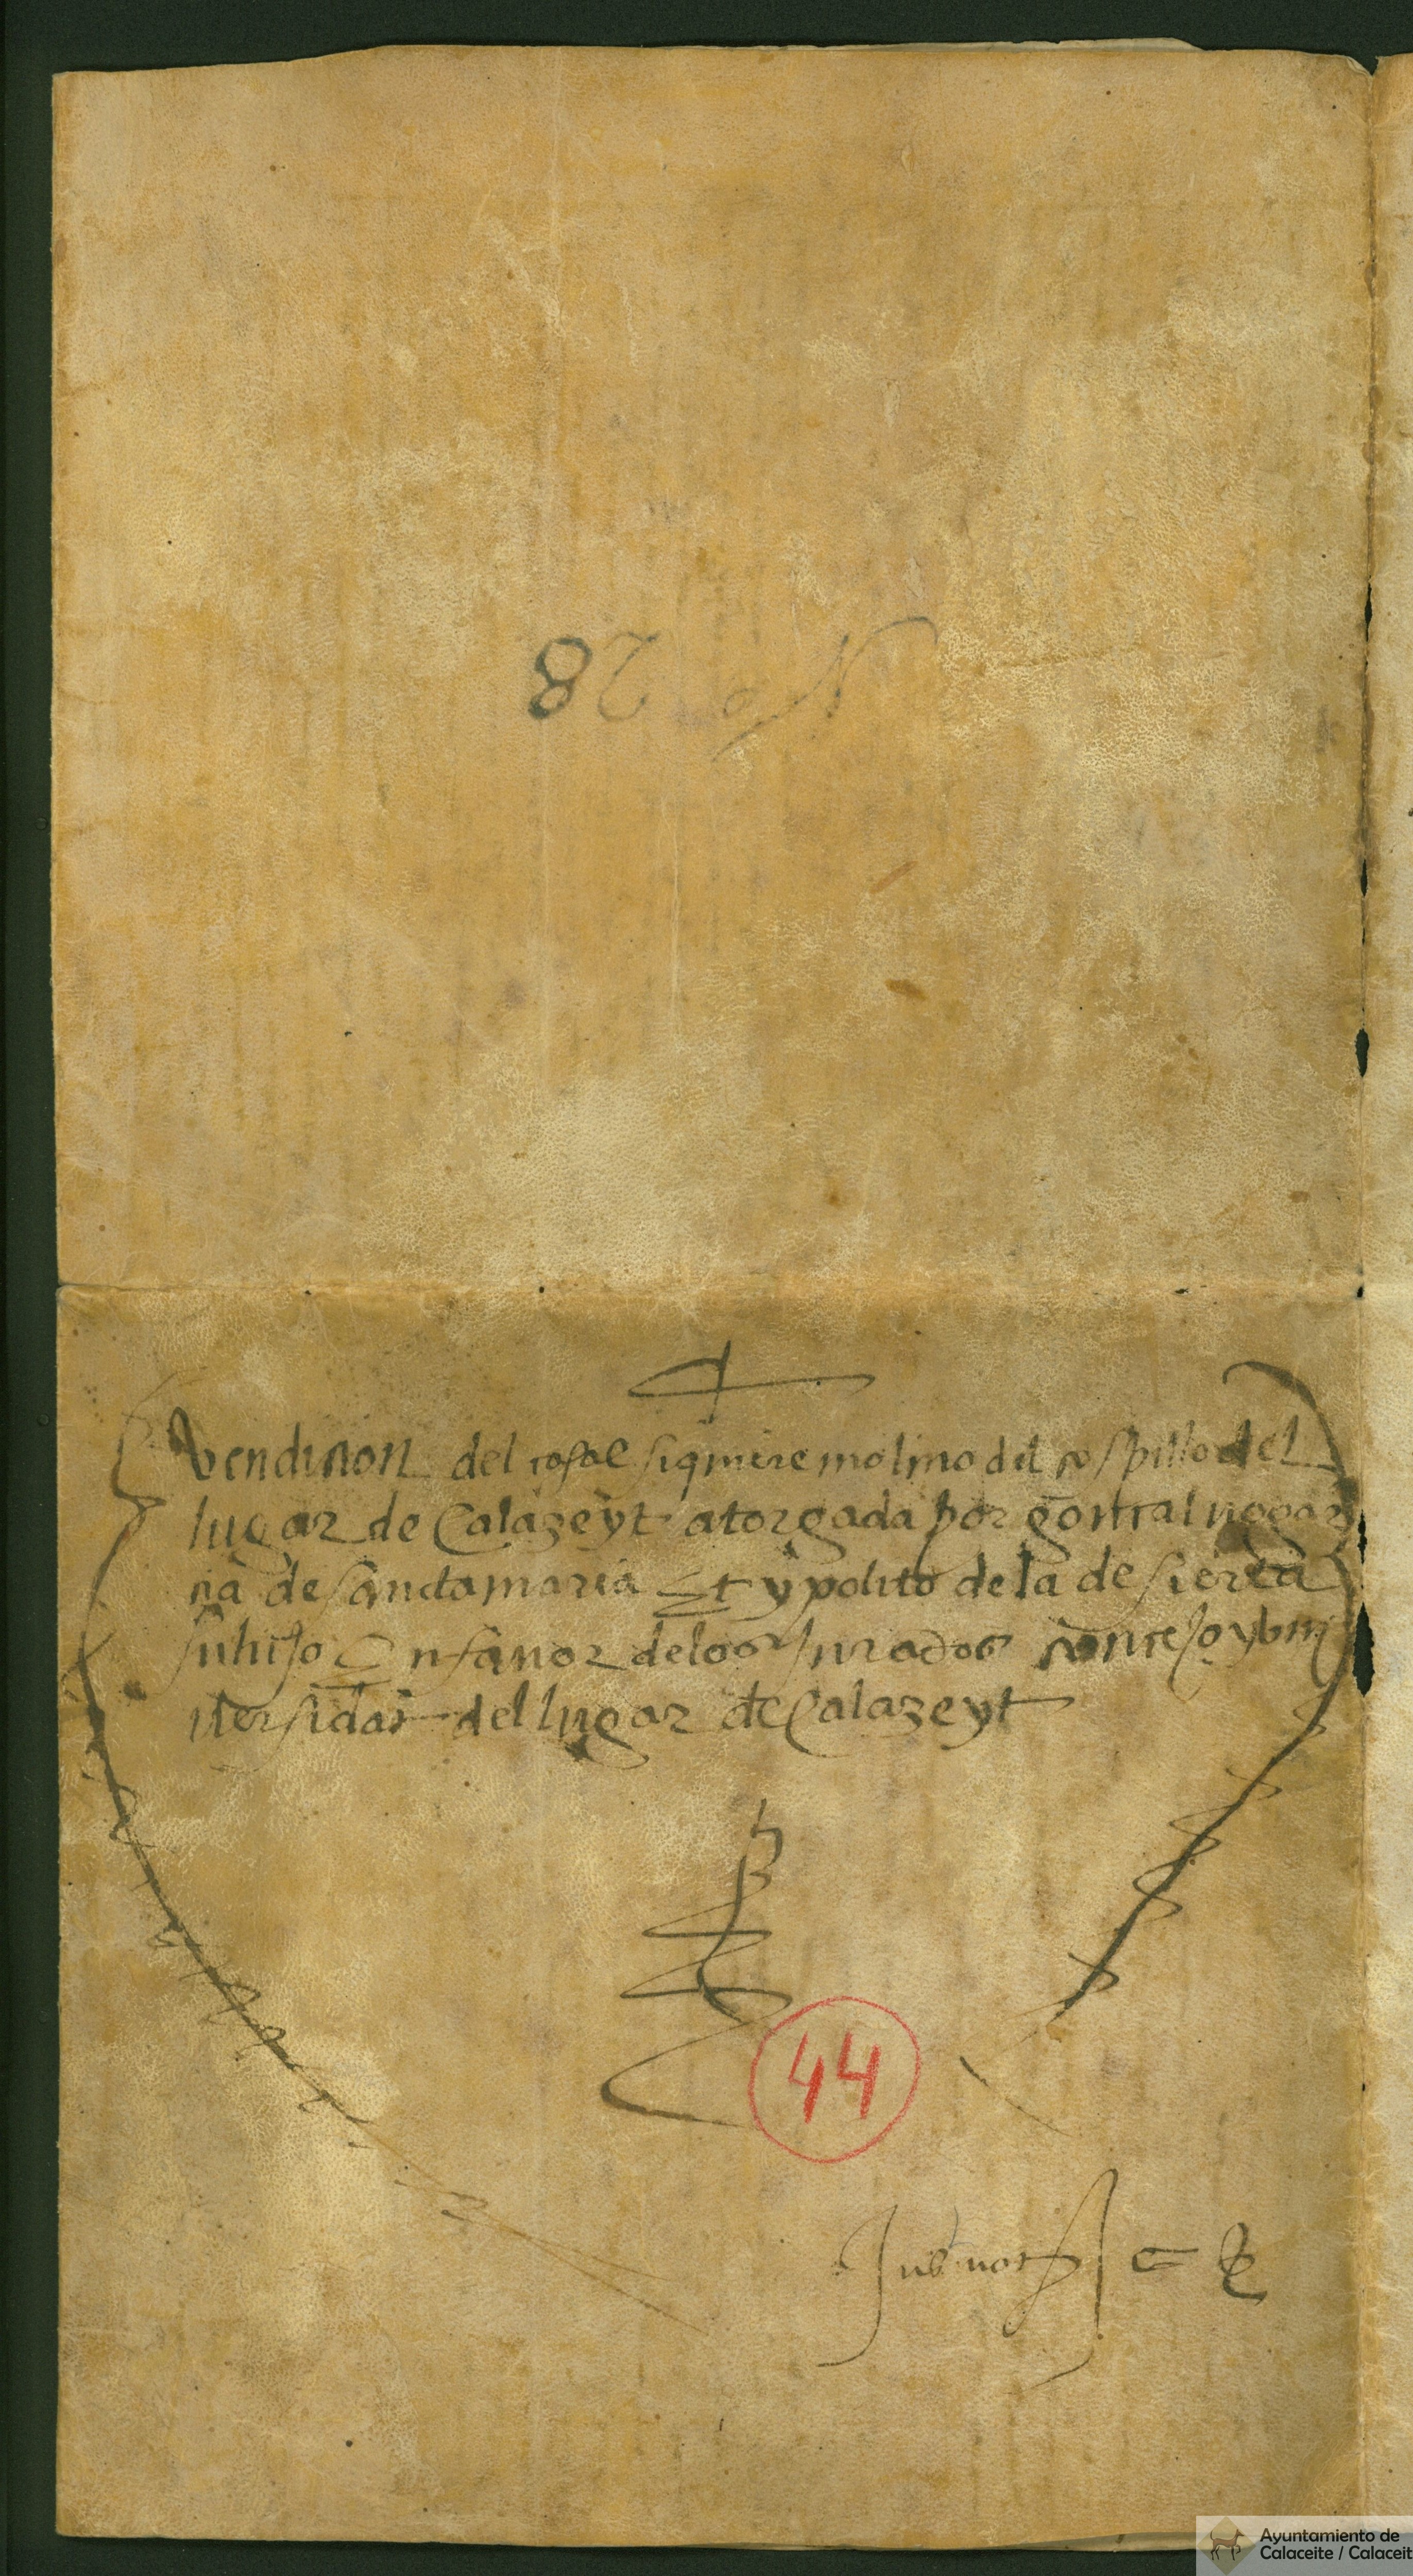 No 28
vendicion del casal siquiere molino del cospillo del
lugar de Calazeyt atorgada por
na de sancta maria Et ypolito de la de sierra
su hijo En favor de los Jurados concejo y uni
versidat del lugar de Calazeyt
44
Ayuntamiento de
Calaceite / Calaceit